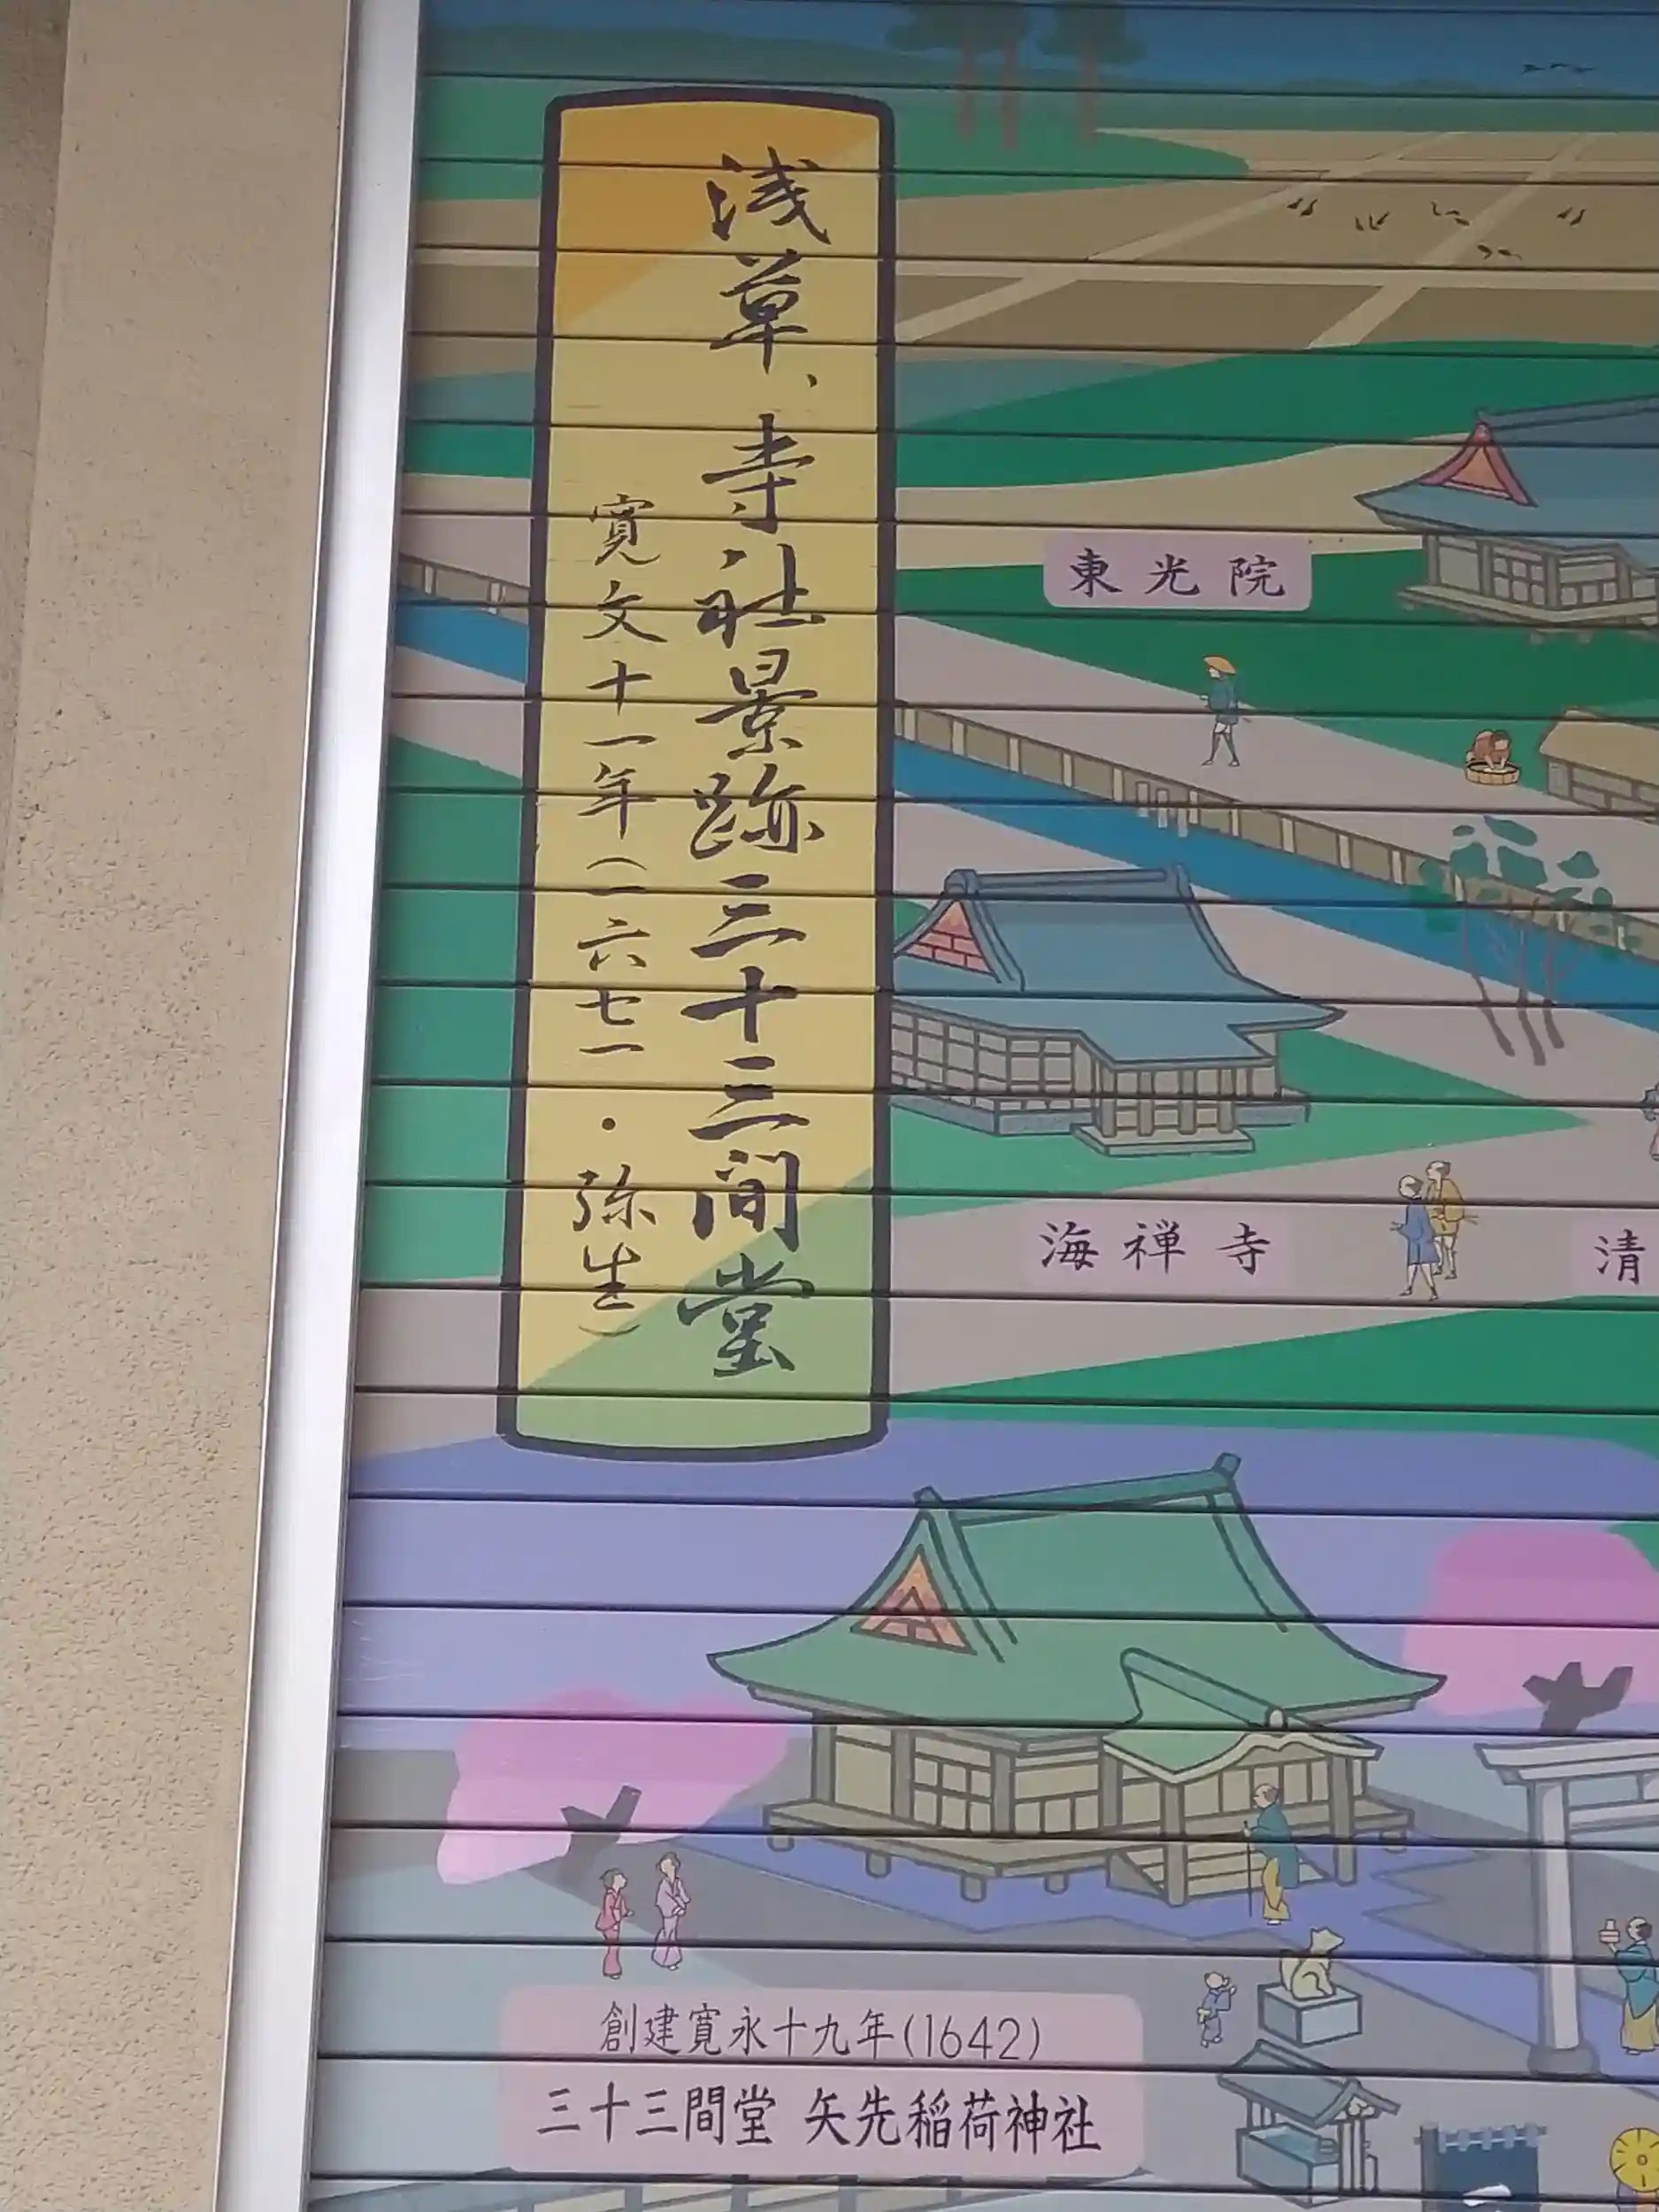 浅草、寺社景跡三十三間堂
寛文十一年(一六七一・弥生)
東光院
海禅寺
清
創建寛永十九年(1642)
三十三間堂 矢先稲荷神社